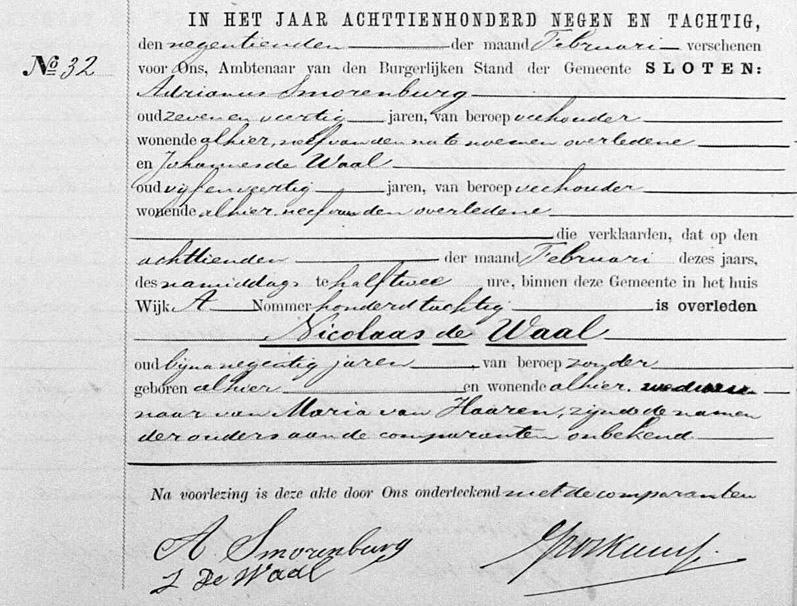 IN HET JAAR ACHTTIENHONDERD NEGEN EN TACHTIG,
den negentienden der maand Februari verschenen
No 32
voor Ons, Ambtenaar van den Burgerlijken Stand der Gemeente SLOTEN:
Adrianus Smorenburg
oud zeven en veertig jaren, van beroep veehouder
wonende alhier, neef van den na te noemen overledene
en Johannes de Waal
oud vijf en veertig jaren, van beroep veehouder
wonende alhier. neef van den overledene
die verklaarden, dat op den
achttienden der maand Februari dezes jaars,
des namiddags te half twee ure, binnen deze Gemeente in het huis
Wijk A Nommer honderd tachtig is overleden
Nicolaas de Waal
oud bijna negentig jaren, van beroep zonder
geboren alhier en wonende alhier. weduwe
naar van Maria van Haaren, zijnde de namen
der ouders aan de comparanten onbekend
Na voorlezing is deze akte door Ons onderteekend met de comparanten
A. Smorenburg
J De Waal